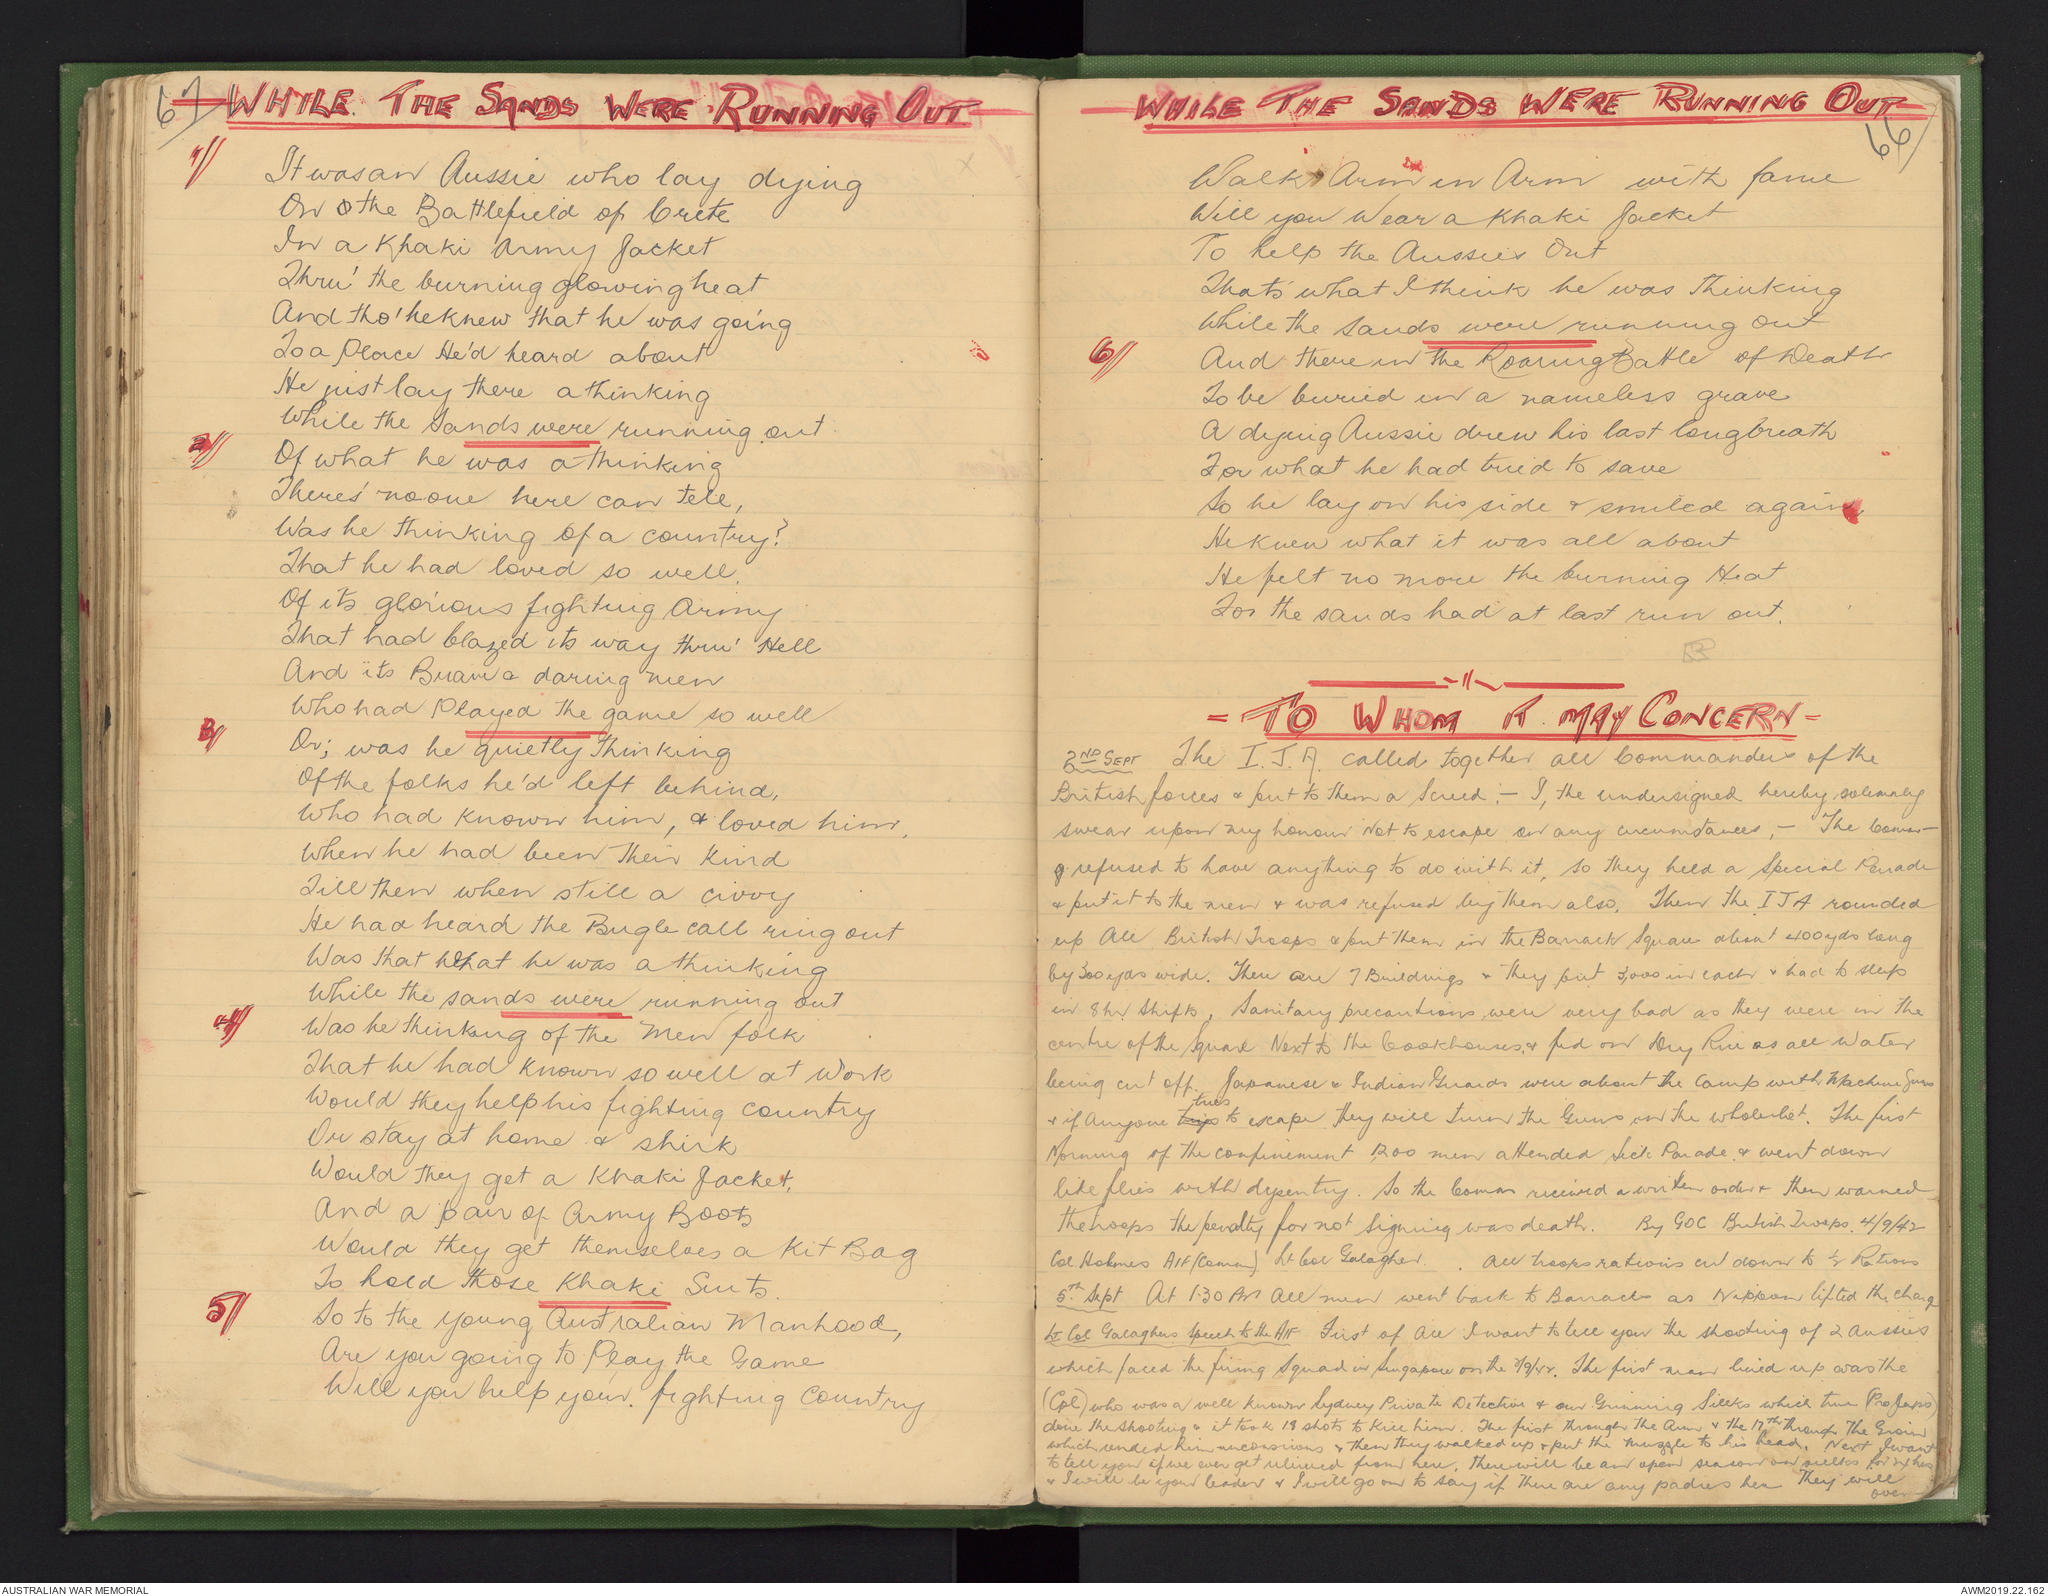 67
WHILE THE SANDS WERE RUNNING OUT
1/
It was an Aussie who lay dying
On the Battlefield of Crete
In a Khaki Army Jacket
Thru' the burning glowing heat
And tho' he knew that he was going
To a Place He'd heard about
He just lay there a thinking
While the Sands were running out
2/
Of what he was a thinking
There's no one here can tell,
Was he thinking of a country?
That he had loved so well.
Of its glorious fighting Army
That had blazed its way thru' Hell
And its Brave & daring men
Who had Played the game so well
3/
Or; was he quietly thinking
Of the folks he'd left behind,
Who had known him, & loved him,
When he had been their kind
Till then when still a civvy
He had heard the Bugle call ring out
Was that what he was a thinking
While the sands were running out
4/
Was he thinking of the Men folk
That he had known so well at Work
Would they help his fighting country
Or stay at home & shirk
Would they get a Khaki Jacket,
And a pair of Army Boots
Would they get themselves a Kit Bag
To hold those Khaki Suits.
5/
So to the young Australian Manhood,
Are you going to Play the Game
Will you help your fighting Country
WHILE THE SANDS WERE RUNNING OUT
66
Walk Arm in Arm with fame
Will you Wear a Khaki Jacket
To help the Aussies Out
That's what I think he was thinking
While the Sands were running out
6/
And there in the Roaring Battle of Death
To be buried in a nameless grave
A dying Aussie drew his last long breath
For what he had tried to save
So he lay on his side & smiled again,
He knew what it was all about
He felt no more the burning Heat
For the sands had at last run out.
- TO WHOM IT MAY CONCERN -
2ND SEPT The I.J.A. called together all Commanders of the
British forces & put to them a Screed :- I, the undersigned hereby solemnly
swear upon my honour Not to escape on any circumstances, - The Comm-
refused to have anything to do with it, so they held a Special Parade
& put it to the men & was refused by them also. Then the IJA rounded
up All British Troops & put them in the Barrack Square about 400yds long
by 300yds wide. There are 7 Buildings & they put 3,000 in each & had to sleep
in 8hr Shifts, Sanitary precautions were very bad as they were in the
centre of the Square Next to the Cookhouses, & fed on Dry Rice as all Water
being cut off. Japanese & Indian Guards were about the Camp with Machine Guns
& if Anyone tries to escape they will turn the Guns on the whole lot. The first
Morning of the confinement 1200 men attended Sick Parade & went down
like flies with dysentry. So the Comm received a written order & then warned
the troops the penalty for not Signing was death. By GOC British Troops. 4/9/42
Col Holmes AIF (Comm) Lt Col Galagher. All troops rations cut down to ½ Rations
5th Sept At 1.30 PM All men went back to Barracks as Nippon lifted the charge
Lt Col Galaghers Speech to the AIF First of All I want to tell you the shooting of 2 Aussies
which faced the firing Squad in Singapore on the 2/9/42. The first man lined up was the
(Cpl) who was a well known Sydney Private Detective & our Grinning Siecks which turn (Pro Japs)
done the shooting & it took 18 shots to kill him. The first through the Arm & the 17th through The Groin
which rended him unconscious & then they walked up & put the muzzle to his head. Next I want
to tell you if we ever get relieved from here, there will be an open season on for
& I will be your leader & I will go on to say if there are any padres here They will
over
AUSTRALIAN WAR MEMORIAL
AWM2019.22.162